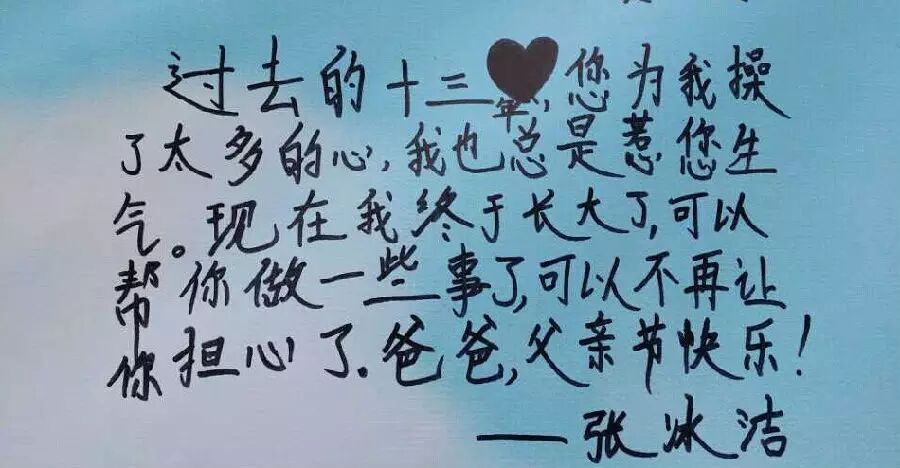 过去的十三年，您为我操
了太多的心，我也总是惹您生
气。现在我终于长大了，可以
帮你做一些事了，可以不再让
你担心了。爸爸，父亲节快乐！
——张冰洁